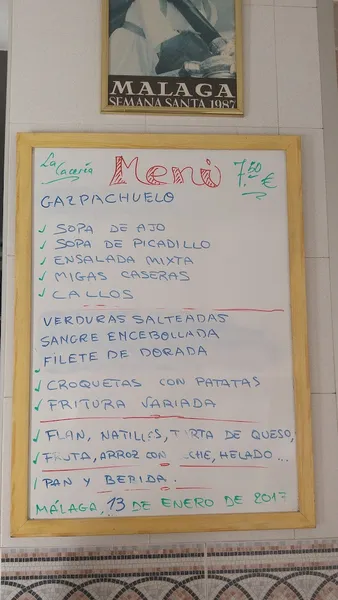 MALAGA
SEMANA SANTA 1987
La Cacería
Menú
7.50 €
GAZPACHUELO
✓ SOPA DE AJO
✓ SOPA DE PICADILLO
✓ ENSALADA MIXTA
✓ MIGAS CASERAS
✓ CALLOS
VERDURAS SALTEADAS
SANGRE ENCEBOLLADA
FILETE DE DORADA
✓ CROQUETAS CON PATATAS
✓ FRITURA VARIADA
✓ FLAN, NATILLAS, TARTA DE QUESO,
✓ FRUTA, ARROZ CON LECHE, HELADO...
PAN Y BEBIDA.
MÁLAGA, 13 DE ENERO DE 2017